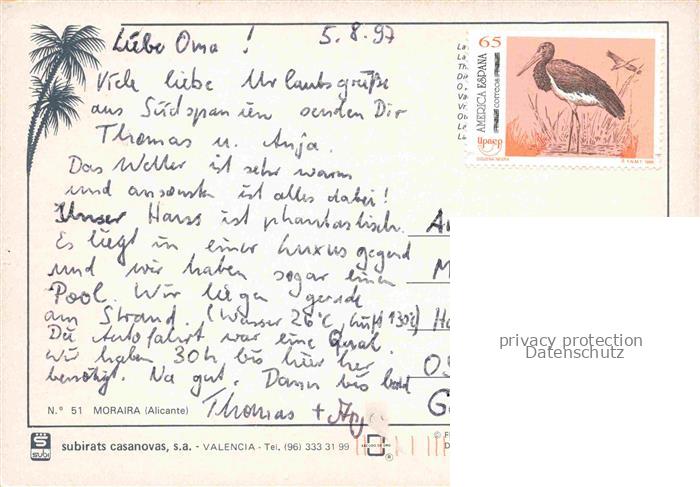 Liebe Oma! 5.8.97
Viele liebe Urlaubsgrüße
aus Südspanien senden Dir
Thomas u. Anja.
Das Wetter ist sehr warm
und ansonsten ist alles dabei!
Unser Haus ist phantastisch.
Es liegt in einer Luxusgegend
und wir haben sogar einen
Pool. Wir liegen gerade
am Strand. (Wasser 26°C, Luft 30°C)
Die Autofahrt war eine Qual.
Wir haben 30h bis hier her
benötigt. Na gut. Dann bis bald
Thomas +
65
AMERICA ESPAÑA
correos
Upaep
CIGÜEÑA NEGRA
privacy protection
Datenschutz
N.º 51 MORAIRA (Alicante)
subi
subirats casanovas, s.a. - VALENCIA - Tel. (96) 333 31 99
ESCUDO DE ORO